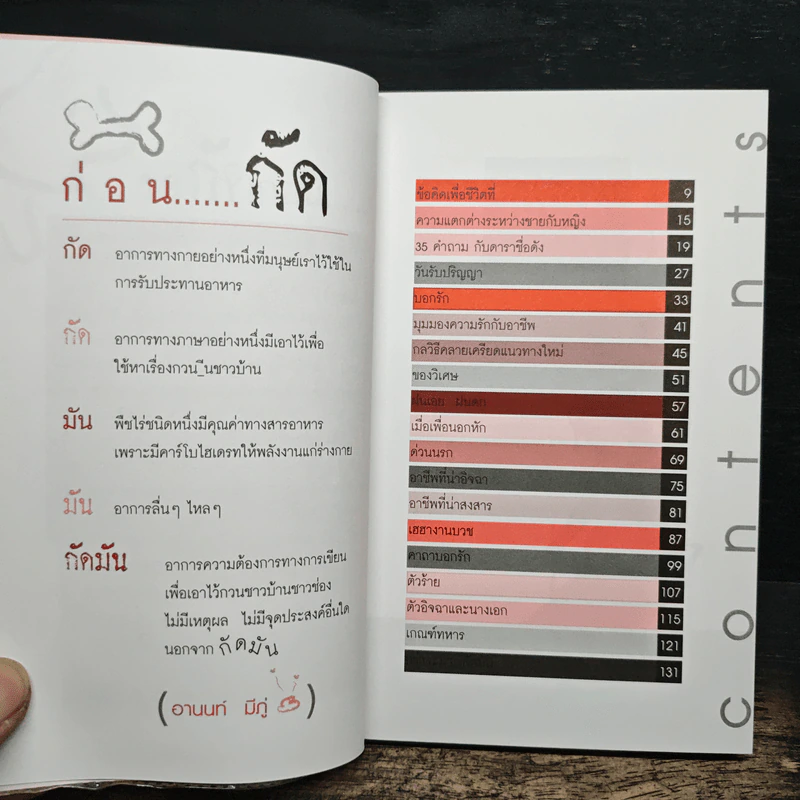 ก่อน....... กัด
กัด อาการทางกายอย่างหนึ่งที่มนุษย์เราไว้ใช้ใน
การรับประทานอาหาร
กัด อาการทางภาษาอย่างหนึ่งมีเอาไว้เพื่อ
ใช้หาเรื่องกวน_ีนชาวบ้าน
มัน พืชไร่ชนิดหนึ่งมีคุณค่าทางสารอาหาร
เพราะมีคาร์โบไฮเดรทให้พลังงานแก่ร่างกาย
มัน อาการลื่นๆ ไหลๆ
กัดมัน อาการความต้องการทางการเขียน
เพื่อเอาไว้กวนชาวบ้านชาวช่อง
ไม่มีเหตุผล ไม่มีจุดประสงค์อื่นใด
นอกจาก กัดมัน
(อานนท์ มีภู่)
contents
ข้อคิดเพื่อชีวิตที่ 9
ความแตกต่างระหว่างชายกับหญิง 15
35 คำถาม กับดาราชื่อดัง 19
วันรับปริญญา 27
บอกรัก 33
มุมมองความรักกับอาชีพ 41
กลวิธีคลายเครียดแนวทางใหม่ 45
ของวิเศษ 51
ฝนเอย ฝนตก 57
เมื่อเพื่อนอกหัก 61
ด่วนนรก 69
อาชีพที่น่าอิจฉา 75
อาชีพที่น่าสงสาร 81
เฮฮางานบวช 87
คาถาบอกรัก 99
ตัวร้าย 107
ตัวอิจฉาและนางเอก 115
เกณฑ์ทหาร 121
131